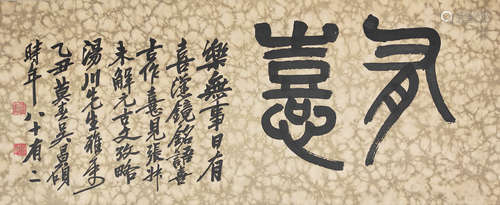 有憙
樂無事日有
喜漢鏡銘語喜
古作憙見張叔
未解元吉文攷略
湯川先生雅屬
乙丑莫春吳昌碩
時年八十有二